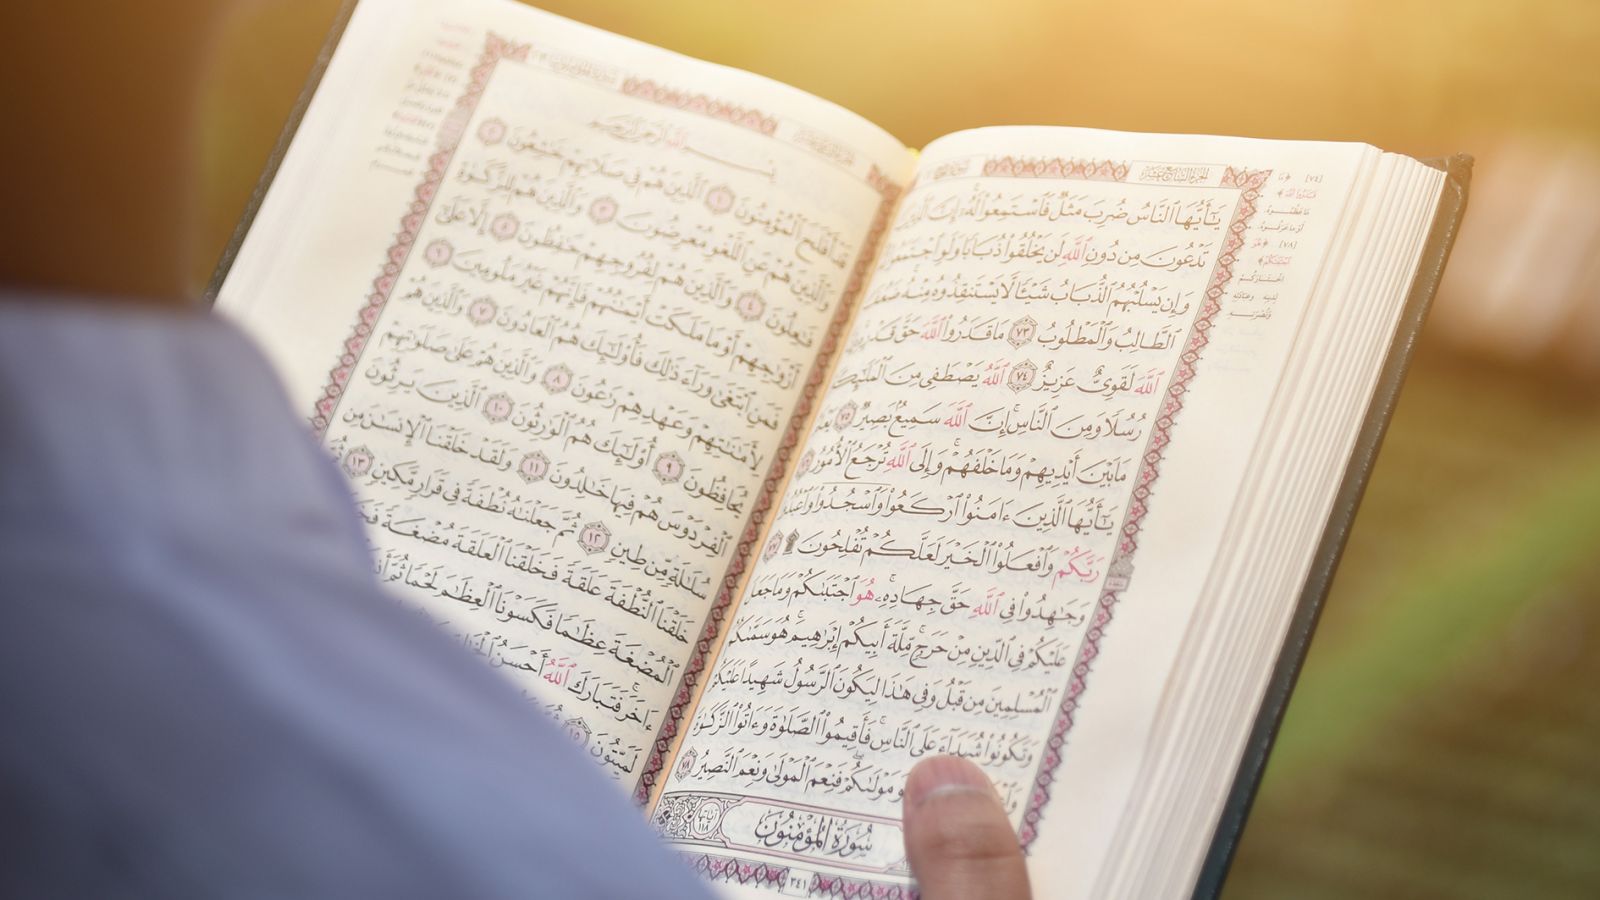 الجزء السابع عشر
يَٰٓأَيُّهَا ٱلنَّاسُ ضُرِبَ مَثَلٌ فَٱسْتَمِعُوا۟ لَهُۥٓ ۚ إِنَّ ٱلَّذِينَ
تَدْعُونَ مِن دُونِ ٱللَّهِ لَن يَخْلُقُوا۟ ذُبَابًا وَلَوِ ٱجْتَمَعُوا۟
وَإِن يَسْلُبْهُمُ ٱلذُّبَابُ شَيْـًٔا لَّا يَسْتَنقِذُوهُ مِنْهُ ۚ ضَعُفَ
ٱلطَّالِبُ وَٱلْمَطْلُوبُ ٧٣ مَا قَدَرُوا۟ ٱللَّهَ حَقَّ قَدْرِهِۦٓ
ٱللَّهَ لَقَوِىٌّ عَزِيزٌ ٧٤ ٱللَّهُ يَصْطَفِى مِنَ ٱلْمَلَٰٓئِكَةِ
رُسُلًا وَمِنَ ٱلنَّاسِ ۚ إِنَّ ٱللَّهَ سَمِيعٌۢ بَصِيرٌ ٧٥ يَعْلَمُ
مَا بَيْنَ أَيْدِيهِمْ وَمَا خَلْفَهُمْ ۗ وَإِلَى ٱللَّهِ تُرْجَعُ ٱلْأُمُورُ
يَٰٓأَيُّهَا ٱلَّذِينَ ءَامَنُوا۟ ٱرْكَعُوا۟ وَٱسْجُدُوا۟ وَٱعْبُدُوا۟
رَبَّكُمْ وَٱفْعَلُوا۟ ٱلْخَيْرَ لَعَلَّكُمْ تُفْلِحُونَ ۩ ٧٧
وَجَٰهِدُوا۟ فِى ٱللَّهِ حَقَّ جِهَادِهِۦ ۚ هُوَ ٱجْتَبَىٰكُمْ وَمَا جَعَلَ
عَلَيْكُمْ فِى ٱلدِّينِ مِنْ حَرَجٍ ۚ مِّلَّةَ أَبِيكُمْ إِبْرَٰهِيمَ ۚ هُوَ سَمَّىٰكُمُ
ٱلْمُسْلِمِينَ مِن قَبْلُ وَفِى هَٰذَا لِيَكُونَ ٱلرَّسُولُ شَهِيدًا عَلَيْكُمْ
وَتَكُونُوا۟ شُهَدَآءَ عَلَى ٱلنَّاسِ ۚ فَأَقِيمُوا۟ ٱلصَّلَوٰةَ وَءَاتُوا۟ ٱلزَّكَوٰةَ
هُوَ مَوْلَىٰكُمْ ۖ فَنِعْمَ ٱلْمَوْلَىٰ وَنِعْمَ ٱلنَّصِيرُ ٧٨
سُورَةُ المُؤْمِنُونَ
آياتها ١١٨
٣٤١
[٧٤] ﴿مَا
قَدَرُوا۟ ٱللَّهَ﴾
مَا عَظَّمُوهُ،
أَوْ مَا عَرَفُوهُ.
[٧٨] ﴿هُوَ
ٱجْتَبَىٰكُمْ﴾
اخْتَارَكُمْ
لِدِينِهِ وَعِبَادَتِهِ
وَنُصْرَتِهِ
بِسْمِ ٱللَّهِ ٱلرَّحْمَٰنِ ٱلرَّحِيمِ
قَدْ أَفْلَحَ ٱلْمُؤْمِنُونَ ١ ٱلَّذِينَ هُمْ فِى صَلَاتِهِمْ خَٰشِعُونَ ٢
وَٱلَّذِينَ هُمْ عَنِ ٱللَّغْوِ مُعْرِضُونَ ٣ وَٱلَّذِينَ هُمْ لِلزَّكَوٰةِ
فَٰعِلُونَ ٤ وَٱلَّذِينَ هُمْ لِفُرُوجِهِمْ حَٰفِظُونَ ٥ إِلَّا عَلَىٰٓ
أَزْوَٰجِهِمْ أَوْ مَا مَلَكَتْ أَيْمَٰنُهُمْ فَإِنَّهُمْ غَيْرُ مَلُومِينَ ٦
فَمَنِ ٱبْتَغَىٰ وَرَآءَ ذَٰلِكَ فَأُو۟لَٰٓئِكَ هُمُ ٱلْعَادُونَ ٧ وَٱلَّذِينَ هُمْ
لِأَمَٰنَٰتِهِمْ وَعَهْدِهِمْ رَٰعُونَ ٨ وَٱلَّذِينَ هُمْ عَلَىٰ صَلَوَٰتِهِمْ
يُحَافِظُونَ ٩ أُو۟لَٰٓئِكَ هُمُ ٱلْوَٰرِثُونَ ١٠ ٱلَّذِينَ يَرِثُونَ
ٱلْفِرْدَوْسَ هُمْ فِيهَا خَٰلِدُونَ ١١ وَلَقَدْ خَلَقْنَا ٱلْإِنسَٰنَ مِن
سُلَٰلَةٍ مِّن طِينٍ ١٢ ثُمَّ جَعَلْنَٰهُ نُطْفَةً فِى قَرَارٍ مَّكِينٍ ١٣ ثُمَّ
خَلَقْنَا ٱلنُّطْفَةَ عَلَقَةً فَخَلَقْنَا ٱلْعَلَقَةَ مُضْغَةً
ٱلْمُضْغَةَ عِظَٰمًا فَكَسَوْنَا ٱلْعِظَٰمَ لَحْمًا ثُمَّ
ءَاخَرَ ۚ فَتَبَارَكَ ٱللَّهُ أَحْسَنُ
لَمَيِّتُونَ ١٥